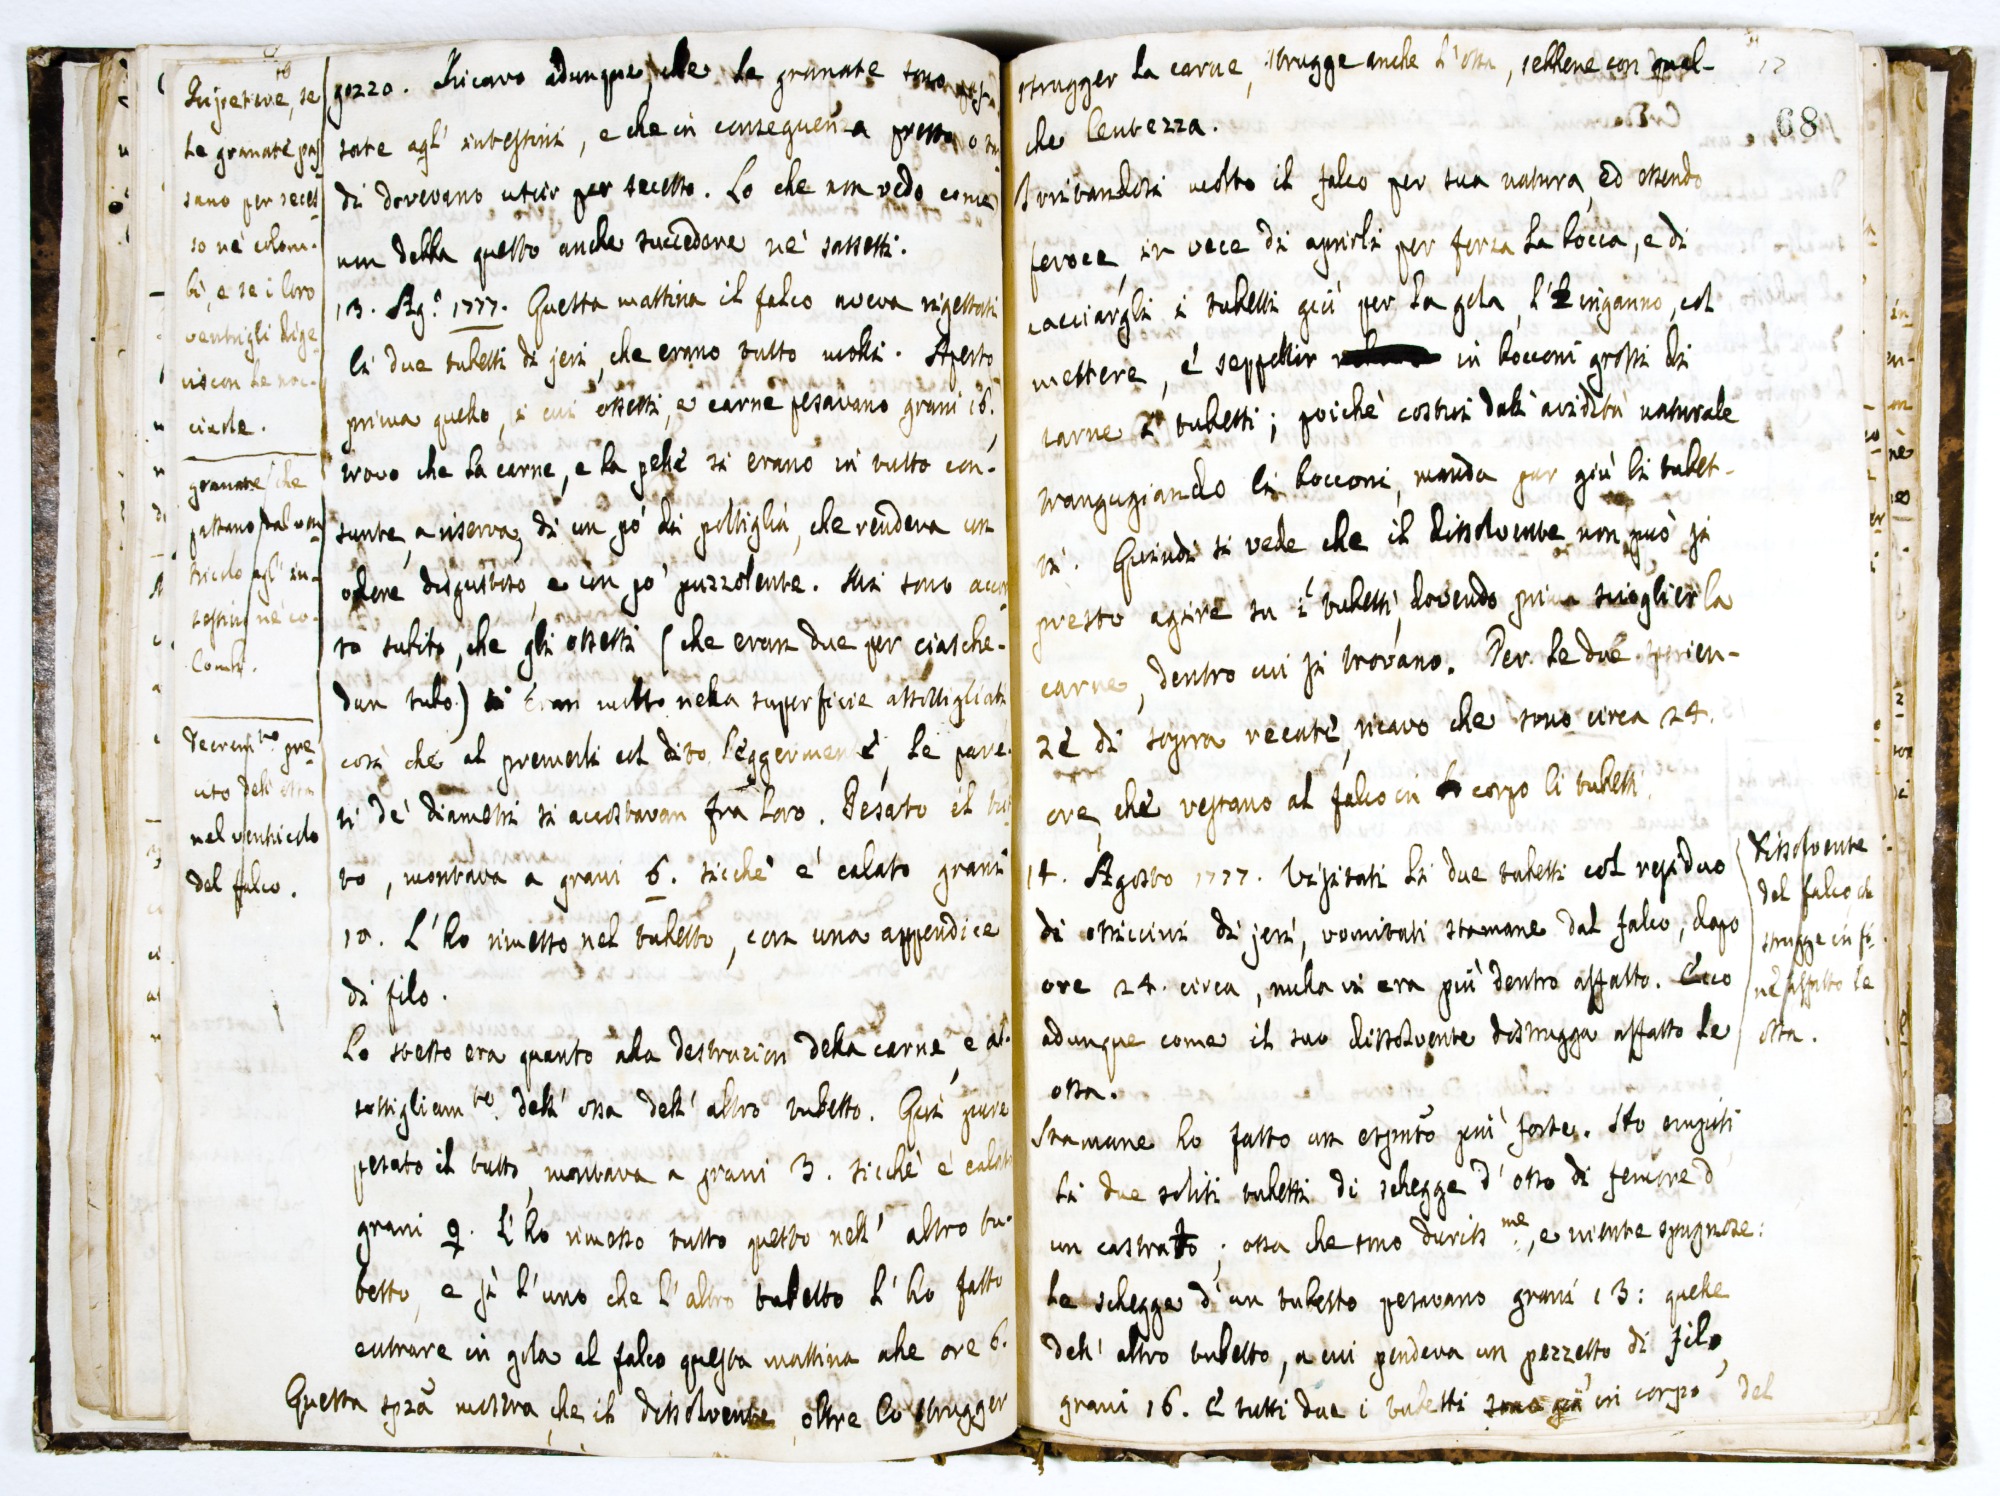 Ripetere, se
le granate pas
sano per seces
so ne' colom-
bi, e se i loro
ventrigli dige-
riscon le noc-
ciuole.
granate che
passano dal ven
tricolo agl' in-
testini ne' co-
lombi.
Decrem.to
cuto dell' ossa
nel ventricolo
del falco.
gozzo. Ricavo adunque, che le granate sono pas
sate agl' intestini, e che in conseguenza presto o tar
di dovevano uscir per secesso. Lo che non vedo come
non debba questo anche succedere ne' sassetti.
13. Ag.o 1777. Questa mattina il falco aveva rigettati
li due tubetti di jeri, che erano tutto molli. Aperto
prima quello, i cui ossetti, e carne pesavano grani 16.,
trovo che la carne, e la pelle si erano in tutto con-
sunte, a riserva di un po' di poltiglia, che rendeva un
odore disgustoso, e un po' puzzolente. Mi sono accor
to subito, che gli ossetti (che eran due per ciasche-
dun tubo) eran molto nella superficie assottigliati
così che al premerli col dito leggermente, le pare-
ti de' diametri si accostavan fra loro. Pesato il tut
to, montava a grani 6. sicchè è calato grani
10. L'ho rimesso nel tubetto, con una appendice
di filo.
Lo stesso era quanto alla destruzion della carne, e as-
sottigliam.to dell' ossa dell' altro tubetto. Qui pure
pesato il tutto, montava a grani 3. sicchè è calato
grani 9. L'ho rimesso tutto questo nell' altro tu-
betto, e sì l'uno che l'altro tubetto l'ho fatto
entrare in gola al falco questa mattina alle ore 6.
Questa spza mostra, che il dissolvente, oltre lo strugger
68
strugger la carne, strugge anche l'ossa, sebbene con qual-
che lentezza.
Irritandosi molto il falco per sua natura, ed essendo
feroce, in vece di aprirli per forza la bocca, e di
cacciargli i tubetti giù per la gola, l'inganno, col
mettere, e seppellir in bocconi grossi di
carne i tubetti; poichè costui dall' avidità naturale
trangugiando li bocconi, manda pur giù li tubet-
ti. Quindi si vede che il dissolvente non può sì
presto agire su i tubetti, dovendo prima scioglier la
carne, dentro cui si trovano. Per le due sperien-
ze di sopra recate, ricavo che sono circa 24.
ore, che restano al falco in corpo li tubetti.
14. Agosto 1777. Visitati li due tubetti col residuo
di ossiccini di jeri, vomitati stamane dal falco, dopo
ore 24. circa, nulla vi era più dentro affatto. Ecco
adunque come il suo dissolvente distrugga affatto le
ossa.
Stamane ho fatto un espmto più forte. Ho empiti
li due soliti tubetti di schegge d'osso di femore d'
un castrato; ossa che sono duriss.me, e niente spugnose:
le schegge d'un tubetto pesavano grani 13: quelle
dell' altro tubetto, a cui pendeva un pezzetto di filo,
grani 16. E tutti due i tubetti sono già in corpo del
Dissolvente
del falco, che
strugge in fi-
ne affatto le
ossa.